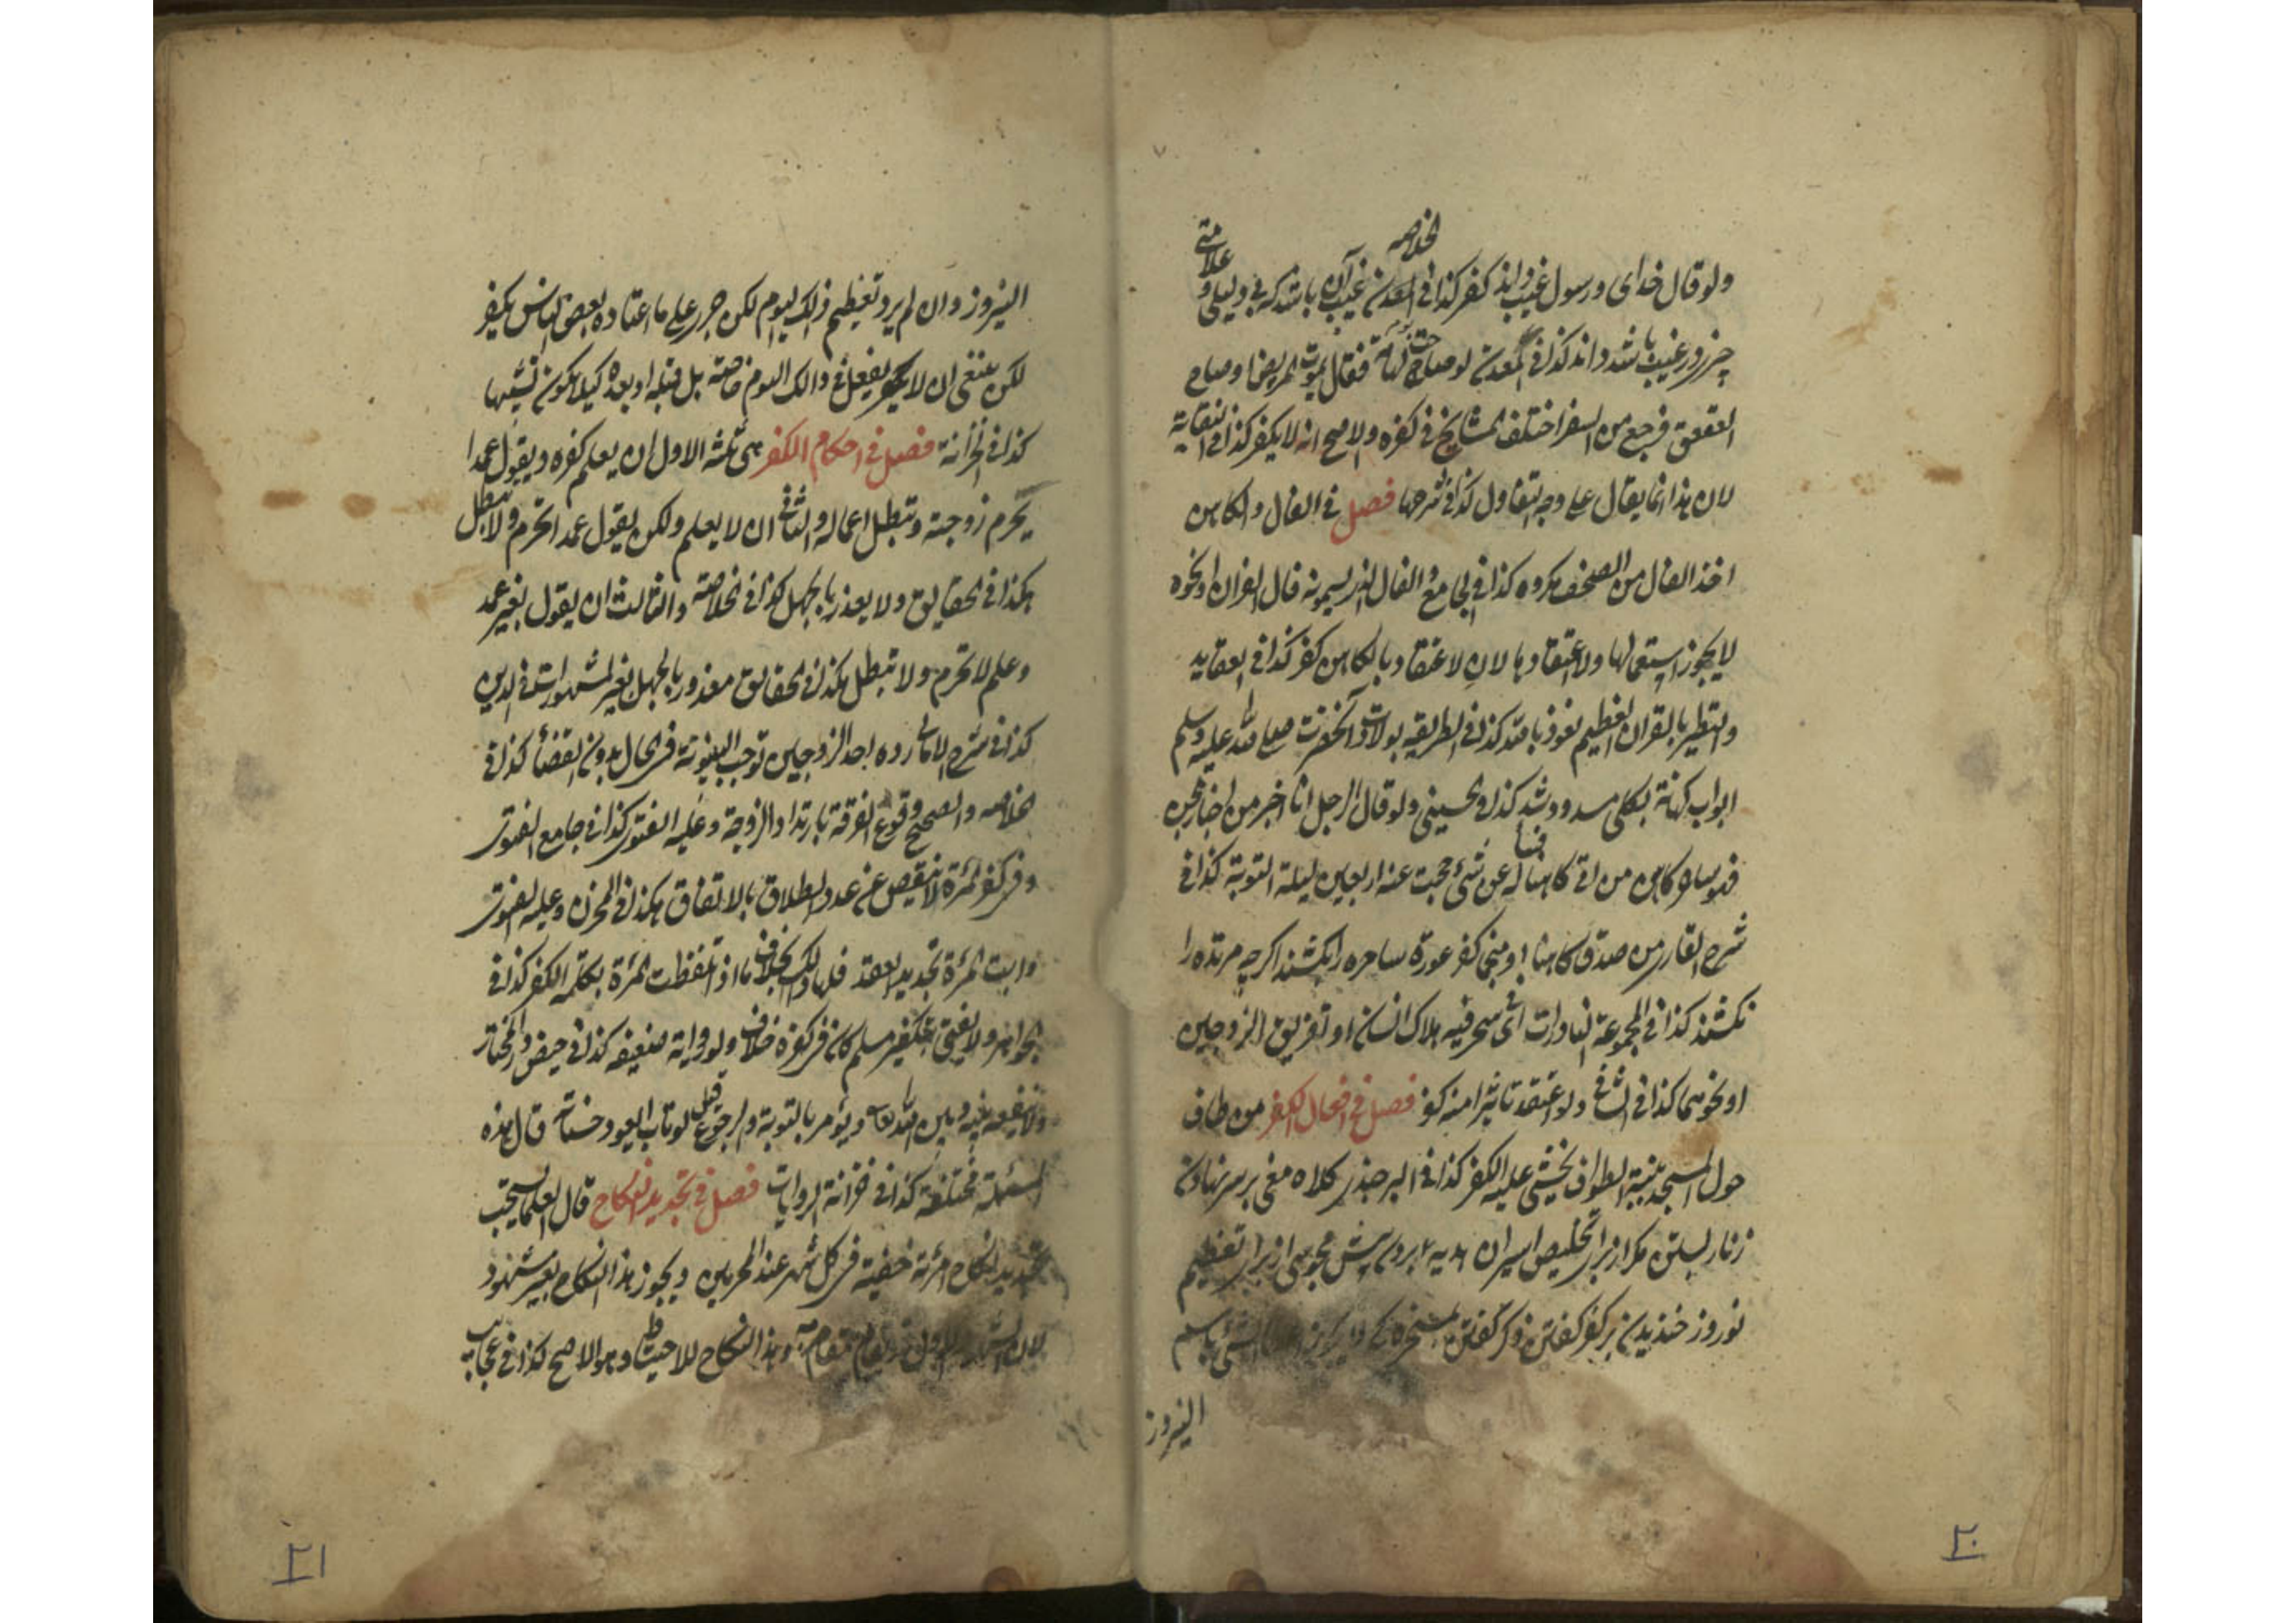 الخلاصه
علامتی
ولو قال خدای و رسول غیب داند کفر کذا فی المعدن غیب آن باشد که بی دلیلی و
چیز در غیب باشد داند کذا فی المعدن لو صاحت الهامة فقال یموت المریض او صاح
العقعق فرجع من السفر اختلف المشایخ فی کفره والاصح انه لا یکفر کذا فی النقایة
لان هذا انما یقال علی وجه التفاول کذا فی شرحها فصل فی الفال والکاهن
اخذ الفال من المصحف مکروه کذا فی الجامع والفال الذی یسمونه فال القران او نحوه
لا یجوز استعمالها ولا اعتقادها لان الاعتقاد بالکاهن کفر کذا فی العقاید
والتطیر بالقران العظیم نعوذ بالله کذا فی الطریقه بولادت آنحضرت صلی الله علیه وسلم
ابواب کهانة بکلی مسدود شد کذا فی الحسینی ولو قال الرجل انا اخبر من اخبار الجن
فهو ساحر کاهن من اتی کاهنا فساله عن شیء حجبت عنه اربعین لیلة التوبة کذا فی
شرح القاری من صدق کاهنا او منجما کفر عورة ساحره را بکشند اگرچه مرتده را
نکشند کذا فی المجموعة النادرات ای فی سحر فیه هلاک انسان او تفریق الزوجین
او نحوهما کذا فی الشافی ولو اعتقد تاثیرا منه کفر فصل فی افعال الکفر من طاف
حول المسجد بنیة الطواف یخشی علیه الکفر کذا فی البرجندی کلاه مغی بر سر نهادن
زنار بستن مکر از برای تخلیص اسیران هدیه بردن پیش مجوسی از برای تعظیم
نوروز خندیدن بر کفر کفتن ذکر کفتن
النیروز
۲۰
النیروز وان لم یرد تعظیم ذلک الیوم لکن جری علی ما اعتاده بعض الناس یکفر
لکن ینبغی ان لا یفعل فی ذالک الیوم خاصة بل قبله او بعده کیلا یکون تشبها
کذا فی الخزانة فصل فی احکام الکفر هی ثلثة الاول ان یعلم کفره ویقول عمدا
یحرم زوجته وتبطل اعماله والثانی ان لا یعلم ولکن یقول عمدا تحرم ولا تبطل
هکذا فی الحقایق ولا یعذر بالجهل کذا فی الخلاصة والثالث ان یقول بغیر عمد
وعلم لا تحرم ولا تبطل هکذا فی الحقائق معذور بالجهل بغیر المشهورات فی الدین
کذا فی شرح الامالی رده احد الزوجین توجب البینونة فی الحال بدون القضأ کذا فی
الخلاصه والصحیح وقوع الفرقة بارتداد الزوجة وعلیه الفتوی کذا فی جامع الفتوی
وفی کفر المرءة لا ینقص عن عدد الطلاق بالاتفاق هکذا فی المخزن وعلیه الفتوی
وابت المرءة تجدید العقد فلها ذلک بخلاف ما اذا تلفظت المرءة بکلمة الکفر کذا فی
الجواهر ولا یفتی بتکفیر مسلم کان فی کفره خلاف ولو روایة ضعیفه کذا فی حیض در المختار
بینه وبین الله تعالی ویؤمر بالتوبة والرجوع قیل لو تاب ایعود حسناته قال هذه
المسئلة مختلفة کذا فی خزانة الروایات فصل فی تجدید النکاح قال العلما یستحب
تجدید نکاح امرئة خفیة فی کل شهر عند الحرمین ویجوز هذا النکاح بغیر شهود
مقامه وهذا النکاح للاحتیاط وهو الاصح کذا فی عجایب
۲۱